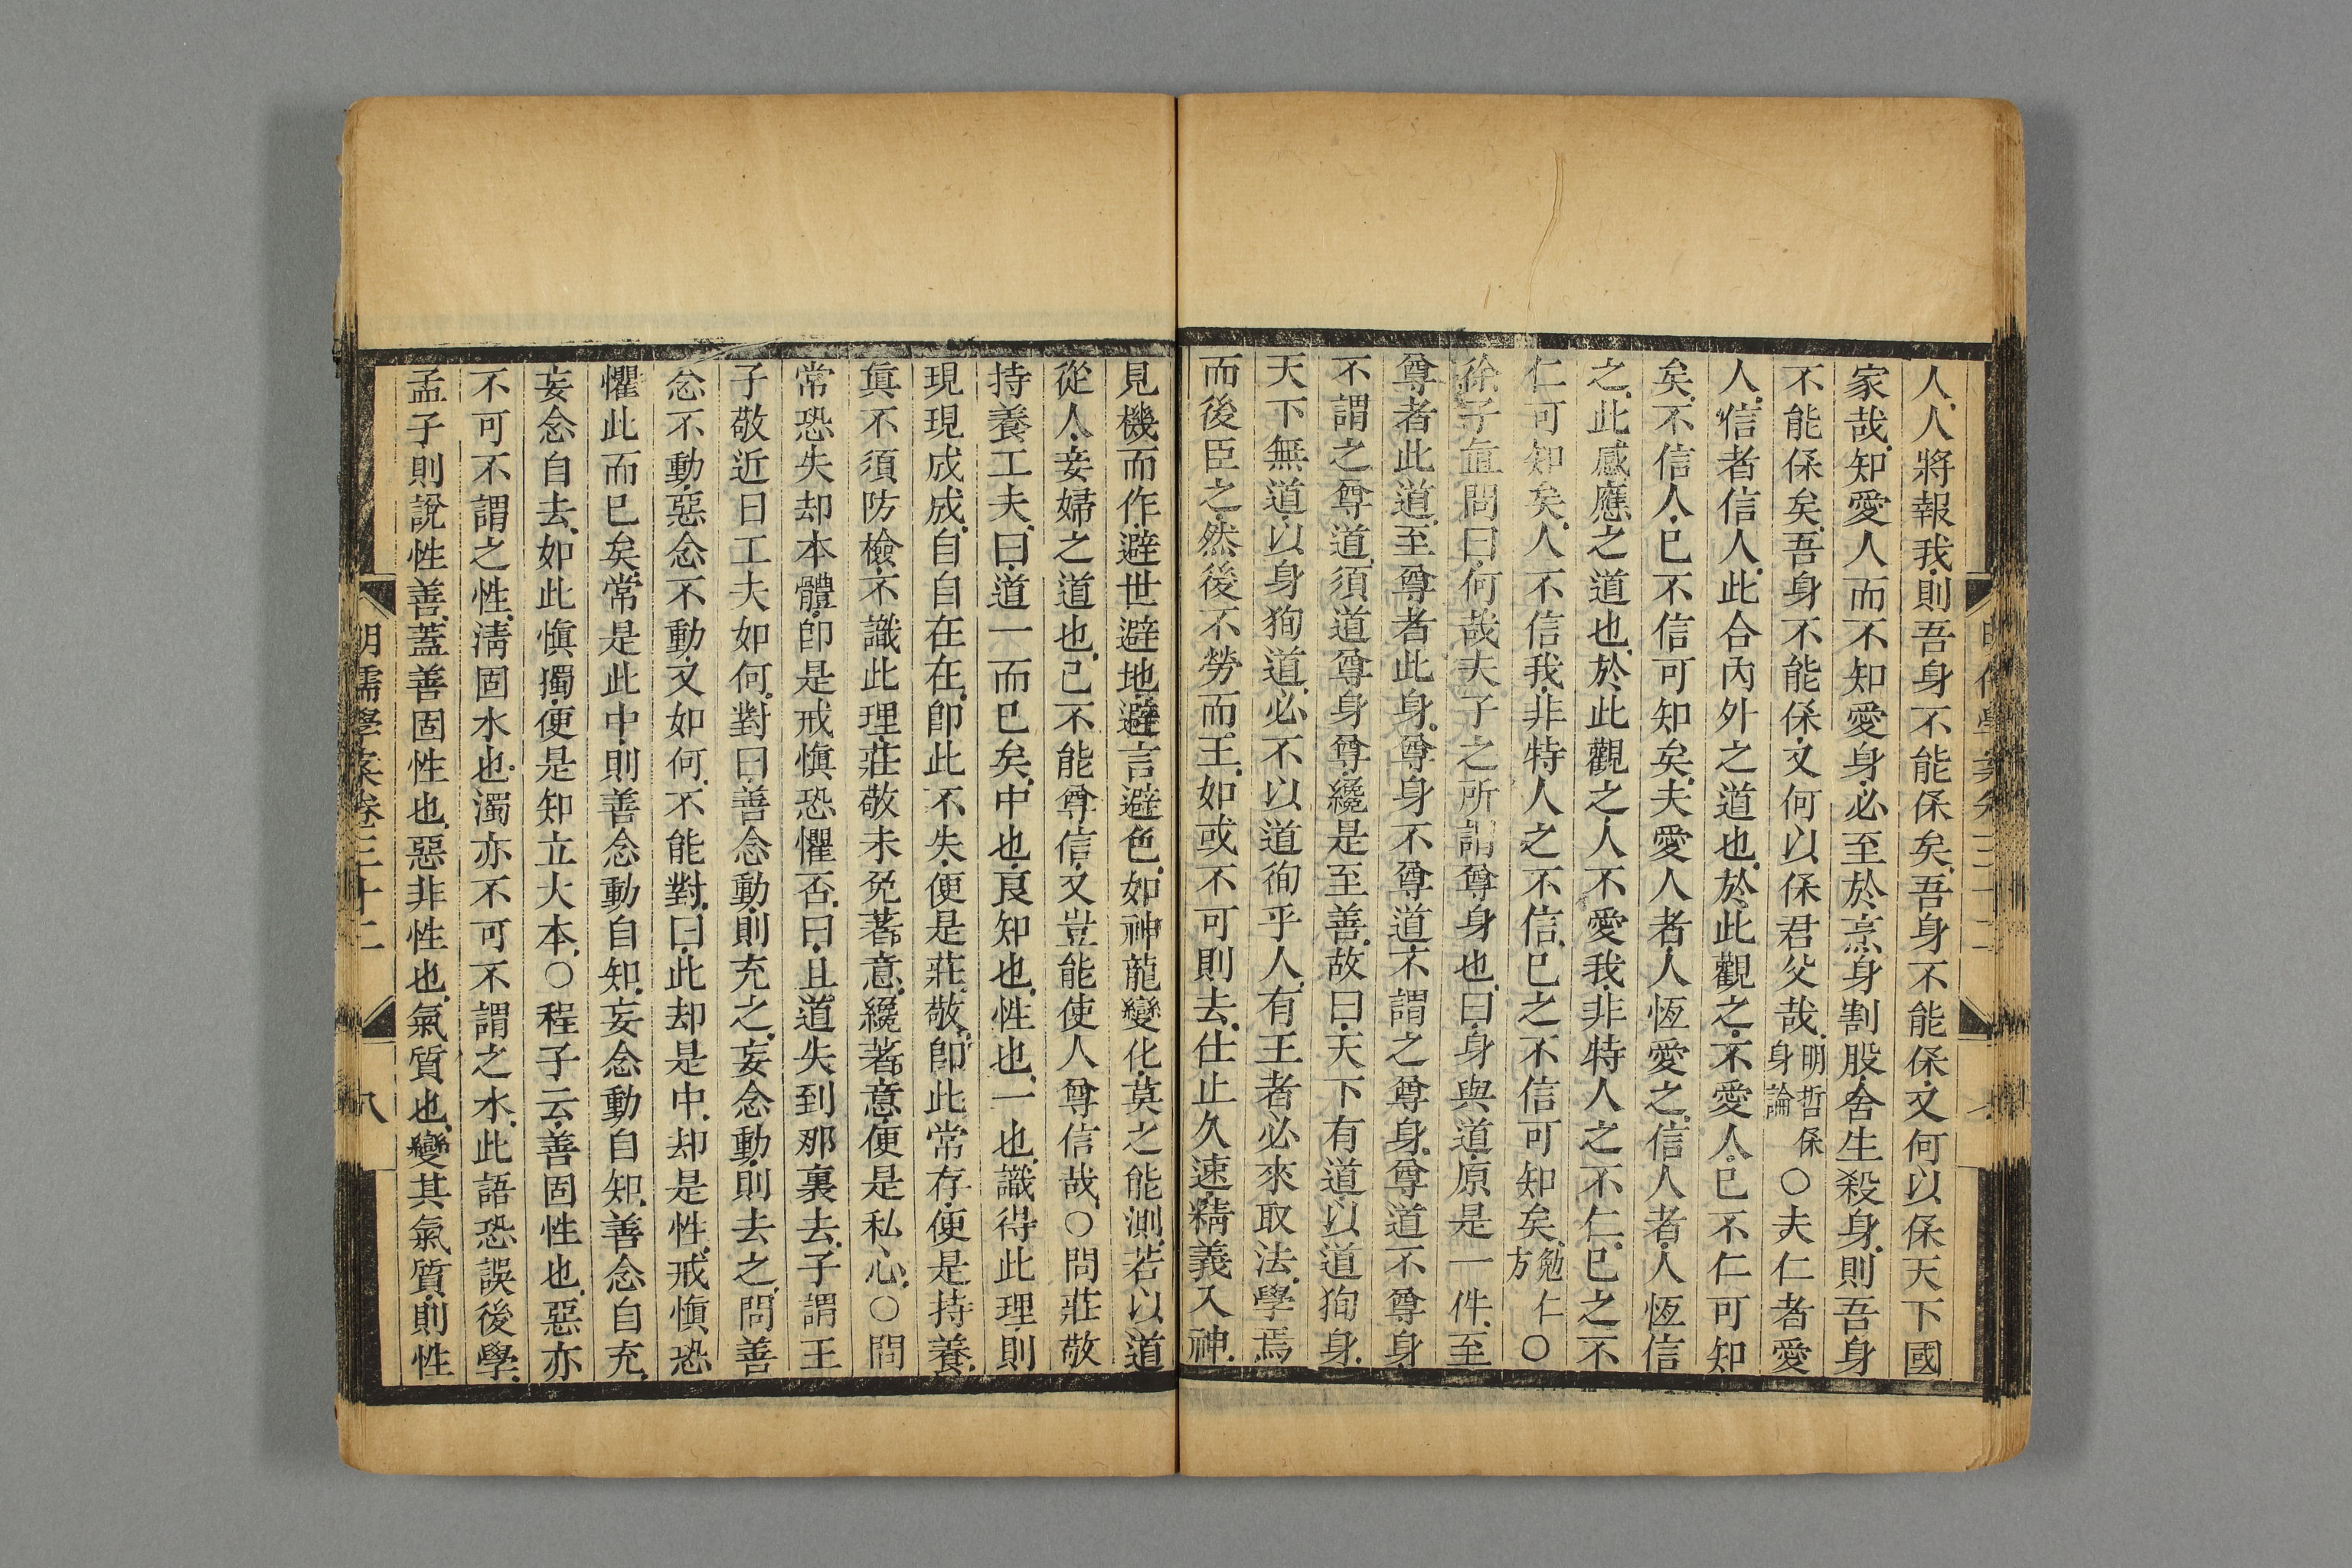 人人將報我則吾身不能保矣吾身不能保又何以保天下國
家哉知愛人而不知愛身必至於烹身割股舍生殺身則吾身
不能保矣吾身不能保又何以保君父哉明哲保身論〇夫仁者愛
人信者信人此合內外之道也於此觀之不愛人已不仁可知
矣不信人已不信可知矣夫愛人者人恆愛之信人者人恆信
之此感應之道也於此觀之人不愛我非特人之不仁已之不
仁可知矣人不信我非特人之不信已之不信可知矣勉仁方〇
徐子直問曰何哉夫子之所謂尊身也曰身與道原是一件至
尊者此道至尊者此身尊身不尊道不謂之尊身尊道不尊身
不謂之尊道須道尊身尊纔是至善故曰天下有道以道狥身
天下無道以身狥道必不以道徇乎人有王者必來取法學焉
而後臣之然後不勞而王如或不可則去仕止久速精義入神
見機而作避世避地避言避色如神龍變化莫之能測若以道
從人妾婦之道也己不能尊信又豈能使人尊信哉〇問莊敬
持養工夫曰道一而已矣中也良知也性也一也識得此理則
現現成成自自在在即此不失便是莊敬即此常存便是持養
眞不須防檢不識此理莊敬未免著意纔著意便是私心〇問
常恐失却本體即是戒愼恐懼否曰且道失到那裏去子謂王
子敬近日工夫如何對曰善念動則充之妄念動則去之問善
念不動惡念不動又如何不能對曰此却是中却是性戒愼恐
懼此而已矣常是此中則善念動自知妄念動自知善念自充
妄念自去如此愼獨便是知立大本〇程子云善固性也惡亦
不可不謂之性淸固水也濁亦不可不謂之水此語恐誤後學
孟子則說性善蓋善固性也惡非性也氣質也變其氣質則性
明儒學案卷三十二
八